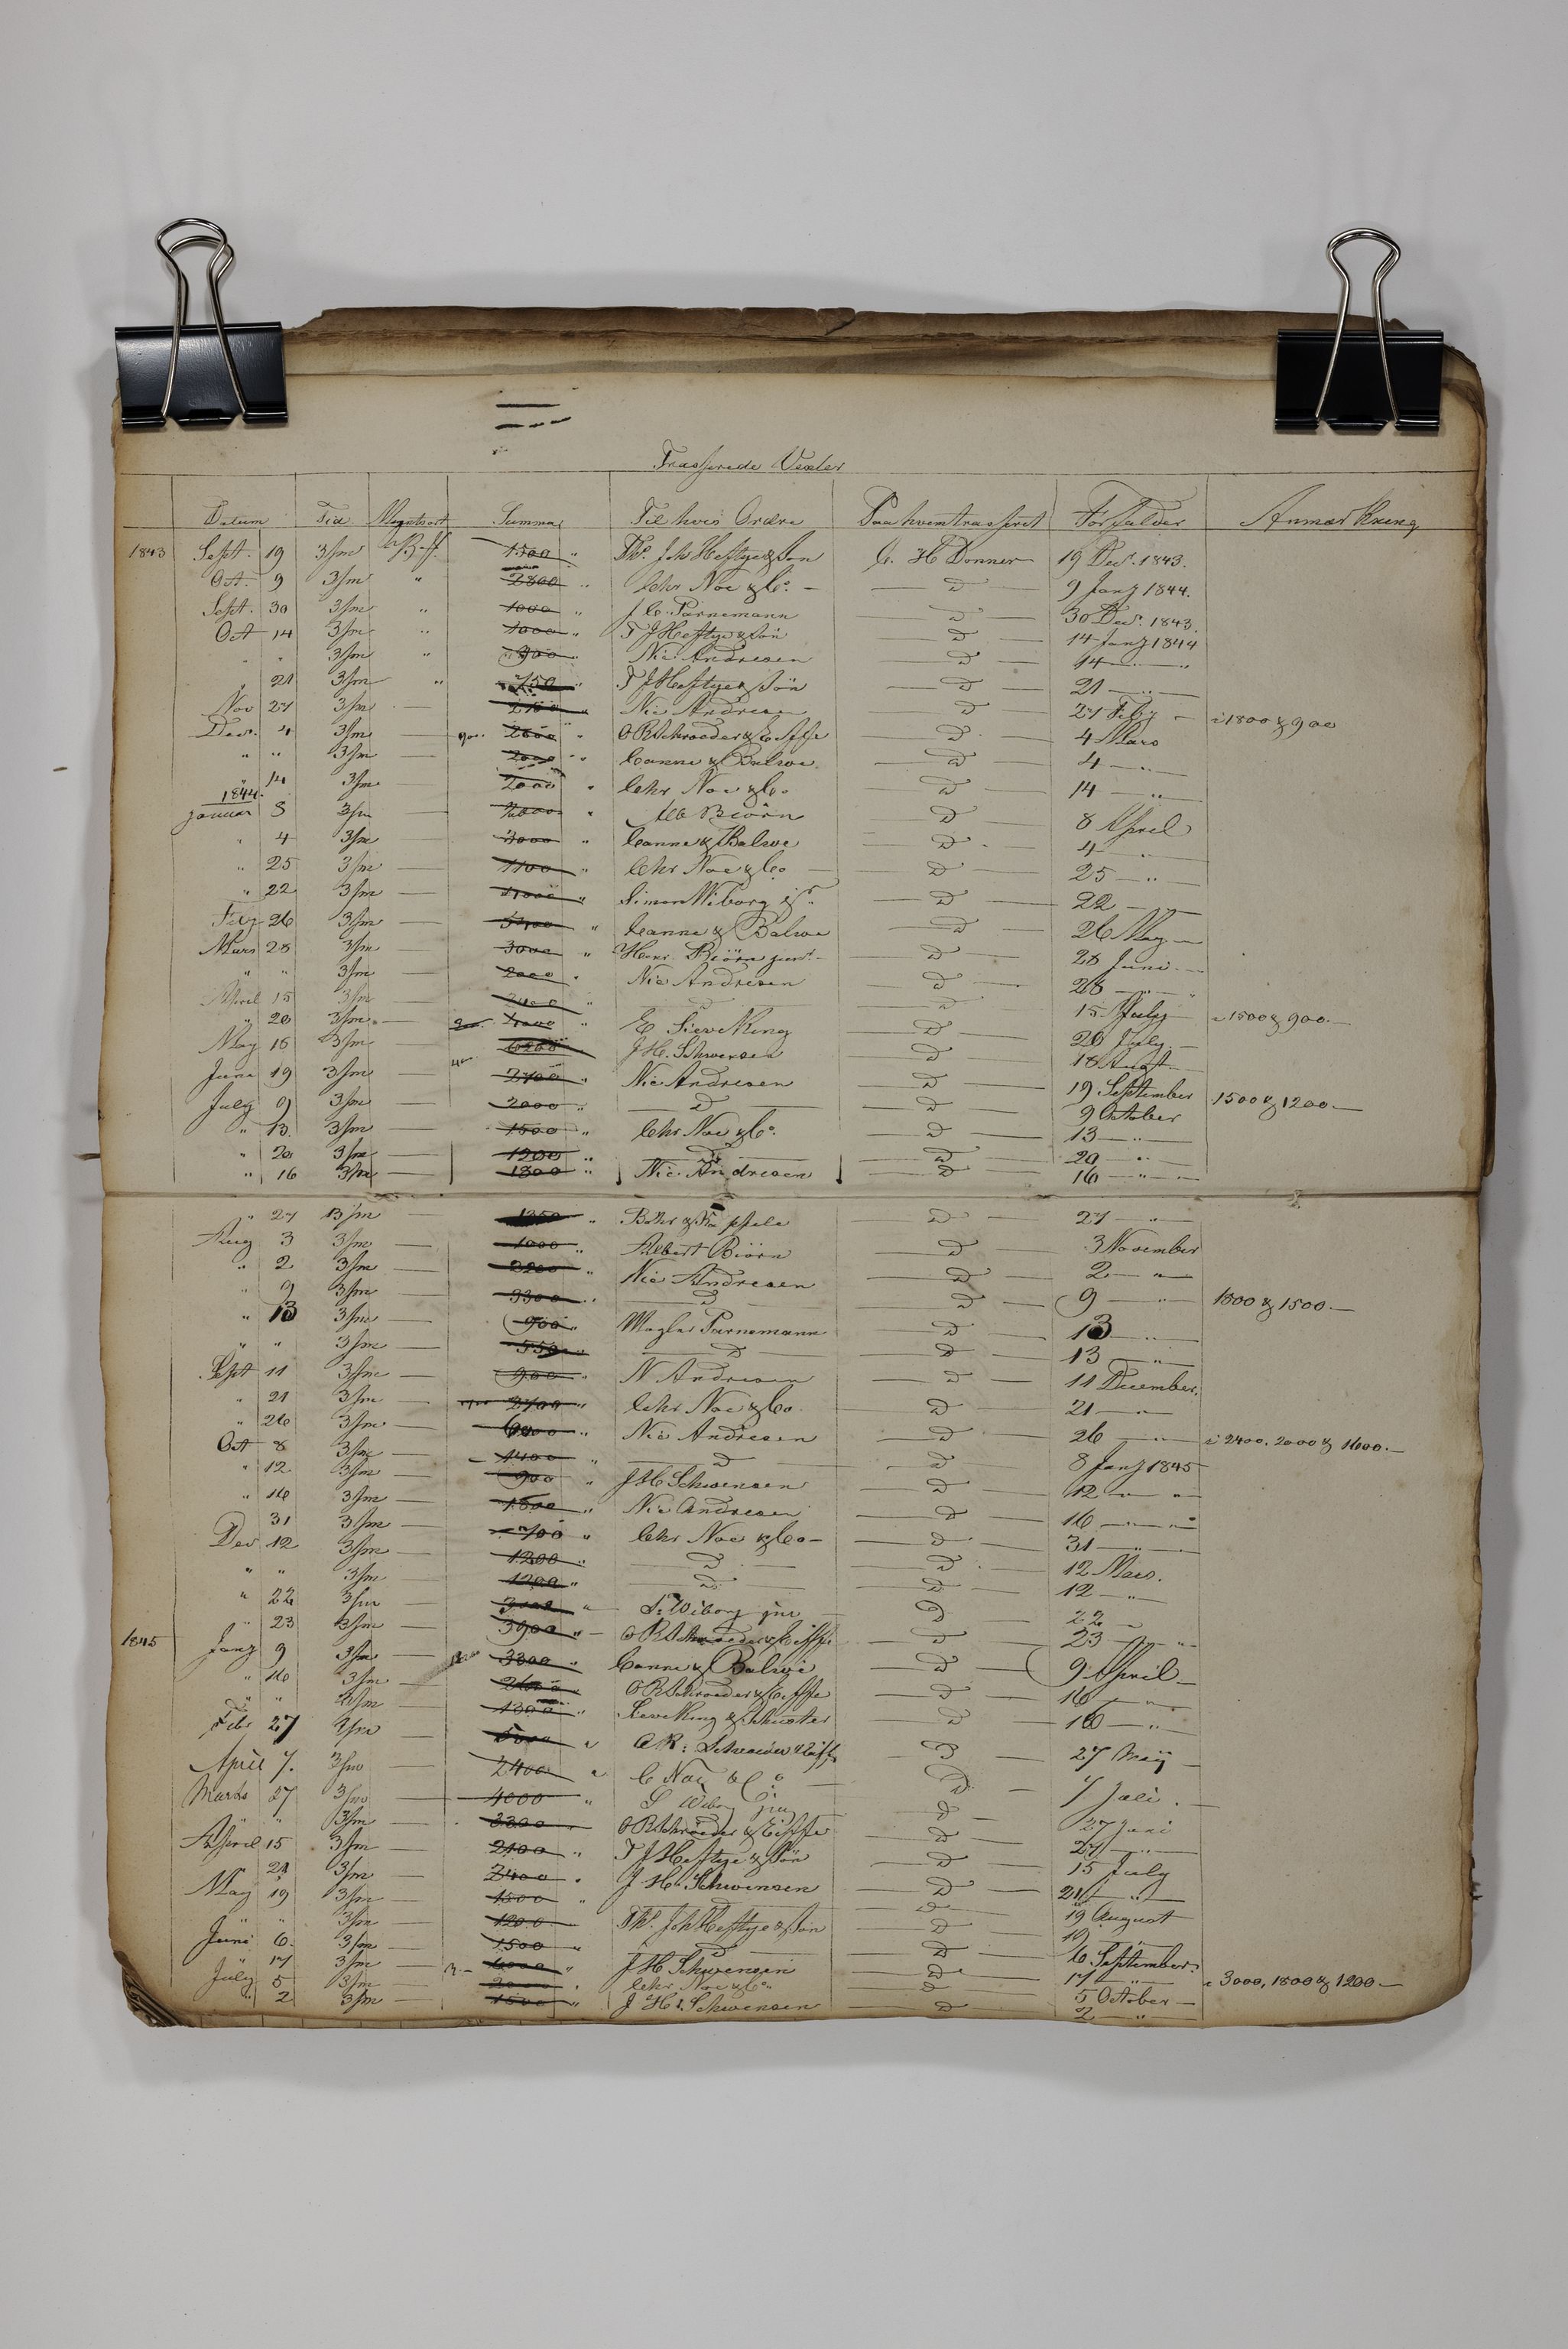 Trasserede Vexler
Datum Tid Myntsort Summa Til hvis Ordre Paa hvem trasseret Forfalder Anmærkning
1843 Sept. 19 3/m 1500 " Ths. Joh Heftye & Søn C. H Donner 19 Decr. 1843.
Oct. 9 3/m " 2800 " Chr Noe & Co. — D — 9 Jany 1844.
Sept. 30 3/m " 1000 " J. C. Parnemann — D — 30 Decr. 1843.
Oct 14 3/m " 1000 " T J Heftye & Søn — D — 14 Jany 1844
" " 3/m " 900 " Nic. Andresen — D — 14 — " —
" 21 3/m — " 750 " T J Heftye & Søn — D — 21 — " —
Nov 27 3/m — " Nic Andresen — D — 27 Feby — a 1800 & 900
Decr. 4 3/m — 900. " O R Schroeder & Eiffe — D — 4 Mars
" " 3/m — 2000 " Canne & Balwe — D — 4 — " —
" 14 3/m — 2000 " Chr Noe & Co — D — 14 — " —
1844.
Januar 8 3/m — " Alb Biørn — D — 8 April
" 4 3/m — 3000 " Canne & Balwe — D — 4 — " —
" 25 3/m — 1100 " Chr Noe & Co — D — 25 — " —
" 22 3/m — " Simon Wiborg jr. — D — 22 — " —
Feby 26 3/m — " Canne & Balwe — D — 26 May —
Mars 28 3/m — 3000 " Henr. Biørn junr. — D — 28 Juni —
" " 3/m — 2000 " Nic Andresen — D — 28 — " —
April 15 3/m — 2400 " — D — — D — 15 July — a 1500 & 900. —
" 20 3/m — " E Sieveking — D — 20 July. —
May 18 3/m — " J H. Schwensen — D — 18 Augt. —
Juni 19 3/m — 2700 " Nic Andresen — D — 19 September 1500 & 1200. —
July 9 3/m — 2000 " — D — — D — 9 October
" 13. 3/m — 1500 " Chr Noe & Co. — D — 13 — " —
" 20 3/m — 1200 " — D — — D — 20 — " —
" 16 3/m — 1800 " Nic. Andresen — D — 16 — " —
" 27 3/m — 1350 " — D — 27 — " —
Aug 3 3/m — 1000 " Albert Biørn — D — 3 November
" 2 3/m — " Nic Andresen — D — 2 — " —
" 9 3/m — 3300 " — D — — D — 9 — " — 1800 & 1500. —
" 13 3/m — 900 " Magler Parnemann — D — 13 — " —
" " 3/m — 550 " — D — — D — 13 — " —
Sept 11 3/m — 900 " N Andresen — D — 11 December.
" 21 3/m — 2700 " Chr Noe & Co. — D — 21 — " —
" 26 3/m — 6000 " Nic Andresen — D — 26 — " — a 2400. 2000 & 1600. —
Oct 8 3/m — 1400 " — D — — D — 8 Jany 1845
" 12 3/m — 900 " J H Schwensen — D — 12 — " — " —
" 16 3/m — 1800 " Nic Andresen — D — 16 — " — " —
31 3/m — 700 " Chr Noe & Co — — D — 31 — " —
Dec 12 3/m — 1200 " — D — — D — 12 Mars.
" " 3/m — 1200 " — D — — D — 12 — " —
" 22 3/m — " S. Wiborg jnr — D — 22 — " —
" 23 3/m — 3900 " O R Schroeder & Eiffe — D — 23 — " —
1845 Jany 9 3/m — 3300 " Canne & Balwe — D — 9 April —
" 16 3/m — " O R Schroeder & Eiffe — D — 16 — " —
" " 3/m 1300 " Sieveking & Schuster — D — 16 — " —
Febr 27 3/m " O R: Schroeder & Eiffe D 27 Maij —
April 7. 3/m 2400 " C Noe & Co — D 7 Juli.
Marts 27 3/m 4000 " S Wiborg jun — D — 27 Juni
" " 3/m — 3300 " O R Schrøder & Eiffe — D — 27 — " —
April 15 3/m — 2100 " T J Heftye & Søn — D — 15 July
21 3/m — 2400 " J H Schwensen — D — 21 — " —
May 19 3/m — 1500 " — D — — D — 19 August
" " 3/m — 1200 Ths. Joh Heftye & Søn — D — 19 — " —
Juni 6. 3/m — 1500 " — D — — D — 6 September.
" 17 3/m — " J H Schwensen — D — 17 — " — a 3000, 1800 & 1200 —
July 5 3/m — " Chr Noe & Co. — D — 5 October —
" 2 3/m — 1500 " J H. Schwensen — D — 2 — " —